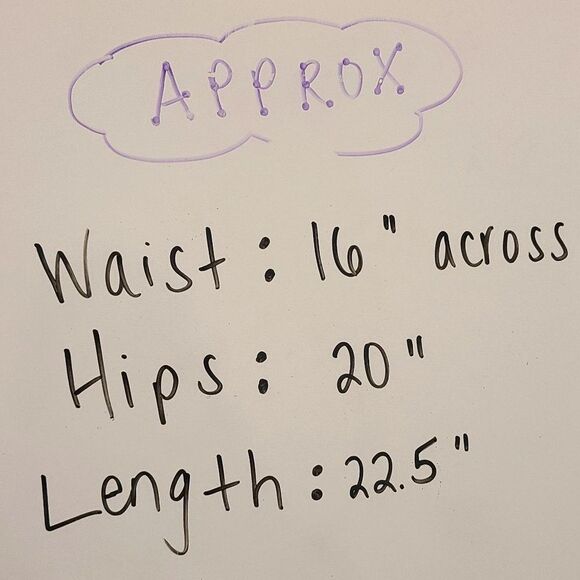 APPROX
Waist: 16" across
Hips: 20"
Length: 22.5"